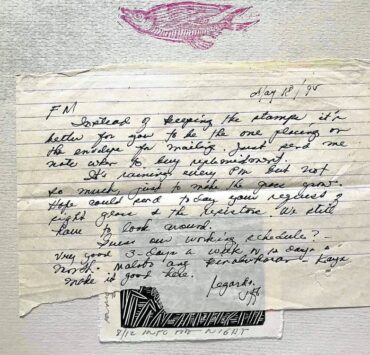 May 18/95
F M
Instead of keeping the stamps it's
better for you to be the one placing on
the envelope for mailing. Just send me
note when to buy replenishment.
It's raining every PM but not
so much, just to make the grass grow.
Hope could send today your request of
right glass & the resistore. We still
have to look around.
Guess our working schedule?
Very good 3-days a week or 12 days a
month.
make it good here.
Regards,
8/12 INTO THE NIGHT